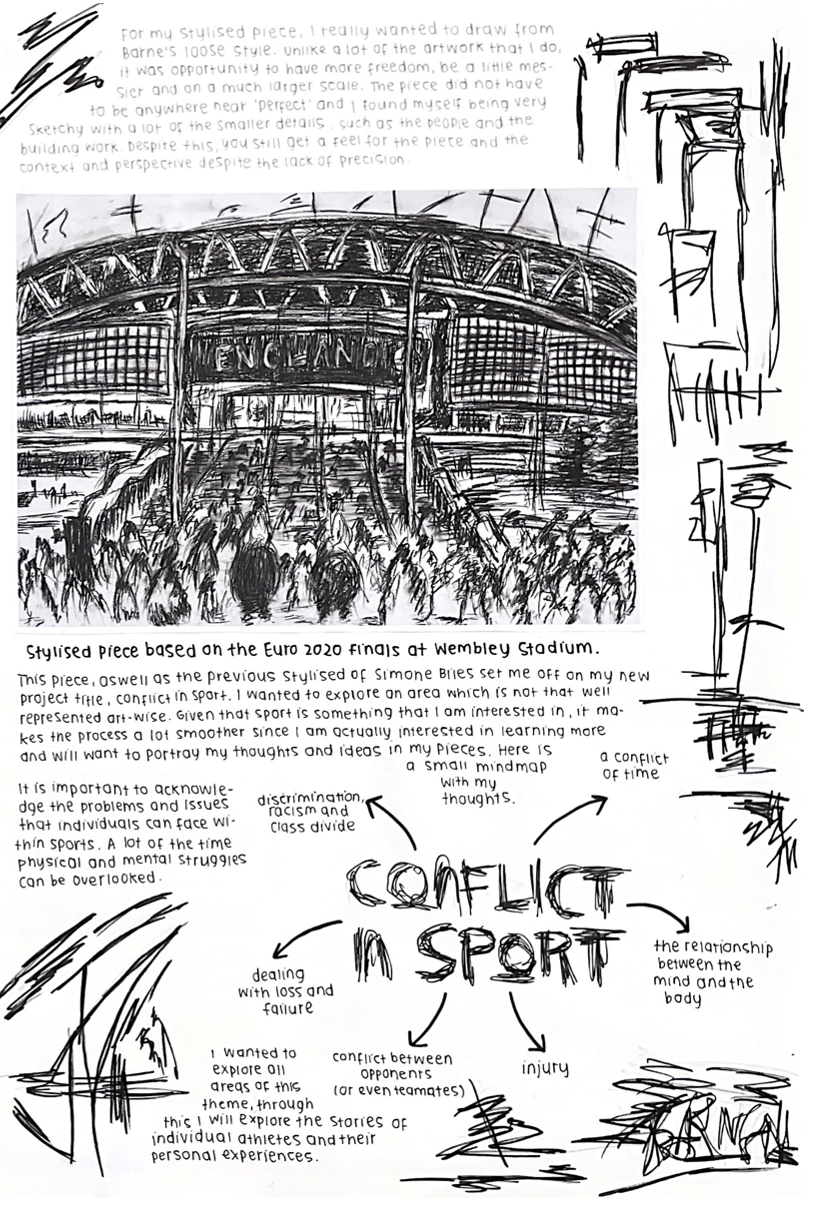 For my stylised piece, I really wanted to draw from
Barne's loose style. Unlike a lot of the artwork that I do,
it was opportunity to have more freedom, be a little mes-
sier and on a much larger scale. The piece did not have
to be anywhere near 'perfect' and I found myself being very
sketchy with a lot of the smaller details, such as the people and the
building work. Despite this, you still get a feel for the piece and the
context and perspective despite the lack of precision.
ENGLAND
Stylised piece based on the Euro 2020 finals at Wembley Stadium.
This piece, aswell as the previous stylised of Simone Biles set me off on my new
project title, conflict in sport. I wanted to explore an area which is not that well
represented art-wise. Given that sport is something that I am interested in, it ma-
kes the process a lot smoother since I am actually interested in learning more
and will want to portray my thoughts and ideas in my pieces. Here is
a small mindmap
with my
thoughts.
a conflict
of time
It is important to acknowle-
dge the problems and issues
that individuals can face wi-
thin sports. A lot of the time
physical and mental struggles
can be overlooked.
discrimination,
racism and
class divide
CONFLICT
IN SPORT
the relationship
between the
mind and the
body
dealing
with loss and
failure
conflict between
opponents
(or even teamates)
injury
I wanted to
explore all
areas of this
theme, through
this I will explore the stories of
individual athletes and their
personal experiences.